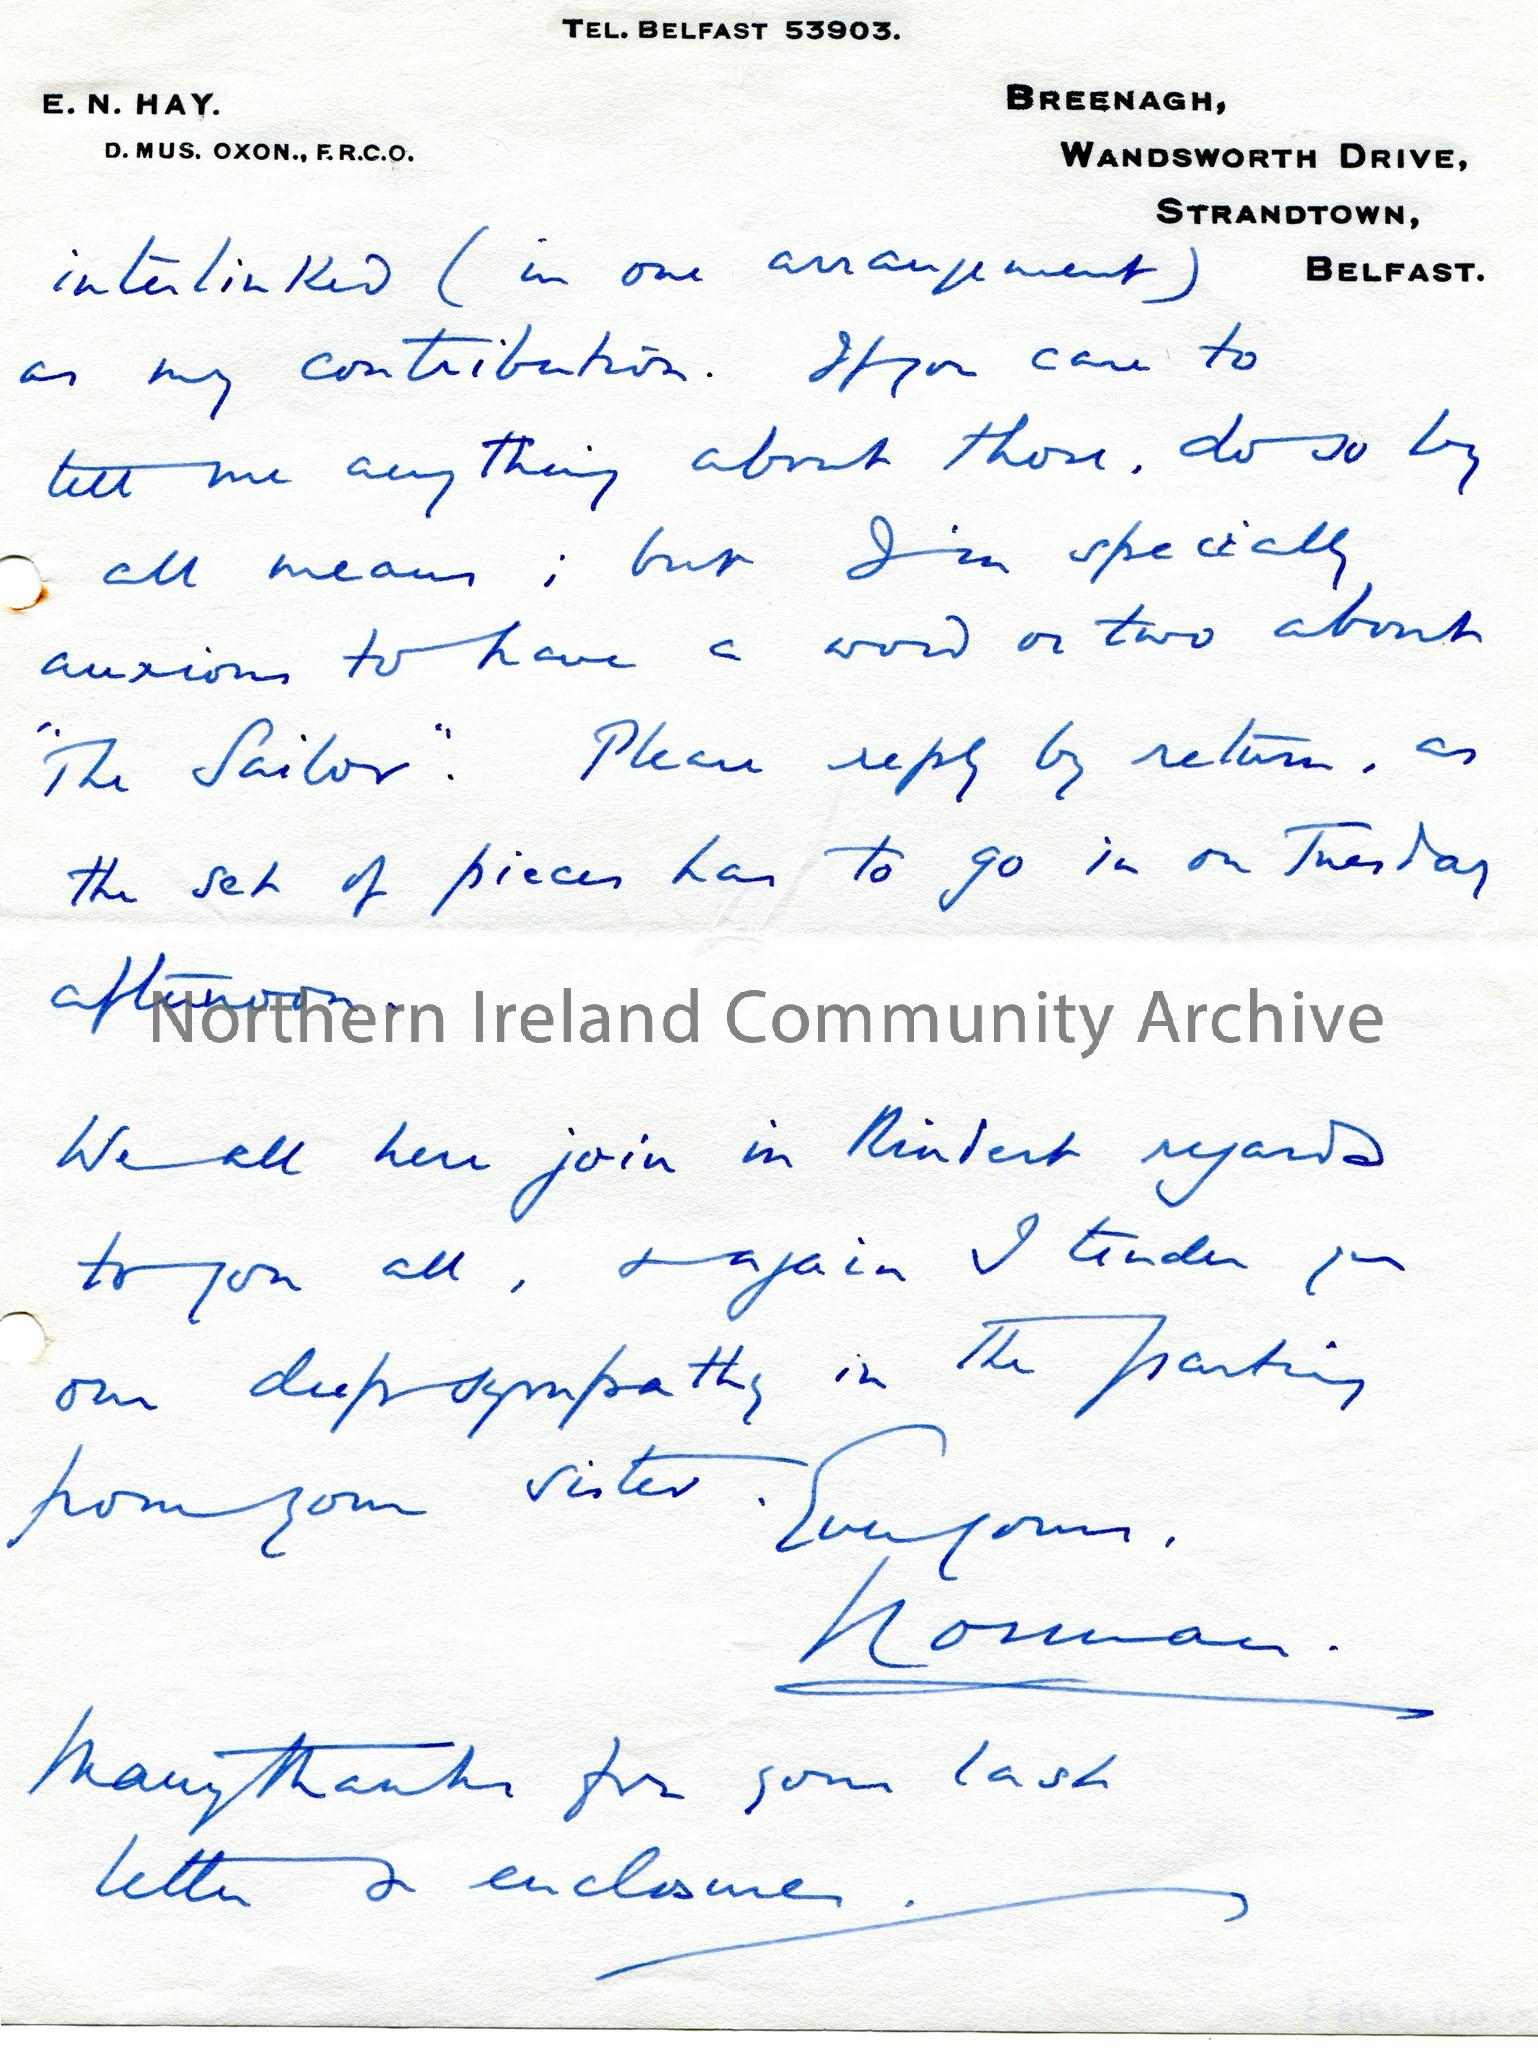 TEL. BELFAST 53903.
E. N. HAY.
D. MUS. OXON., F.R.C.O.
BREENAGH,
WANDSWORTH DRIVE,
STRANDTOWN,
BELFAST.
interlinked (in one arrangement)
as my contribution. If you care to
tell me anything about those, do so by
all means; but I'm specially
anxious to have a word or two about
"The Sailor". Please reply by return, as
the set of pieces has to go in on Tuesday
afternoon.
Northern Ireland Community Archive
We all here join in kindest regards
to you all, & again I tender you
our deep sympathy in the parting
from your sister. Ever yours,
Norman.
Many thanks for your last
letter & enclosures.